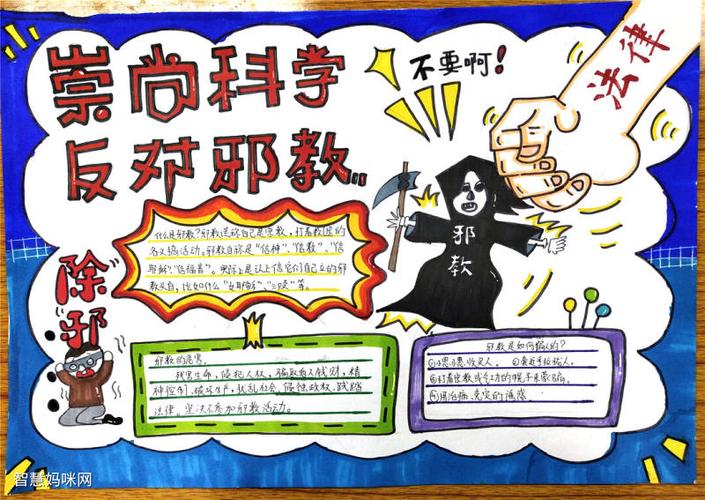 崇尚科学
反对邪教
不要啊!
法律
邪教
什么是邪教?邪教谎称自己是宗教,打着教区的
名义搞活动。邪教自称是“信神”、“信教”、“信
耶稣”、“信福音”。实际上是让人信它们自己立的邪
教头目,比如什么“女
等。
除“邪”
邪教的危害
残害生命,侵犯人权,骗取家人钱财,精
神控制、破坏生产,扰乱社会、侵蚀政权、践踏
法律。坚决不参加邪教活动。
邪教是如何骗人的?
①小恩小惠收买人。
②打着宗教或气功的幌子来蒙骗
智慧妈咪网